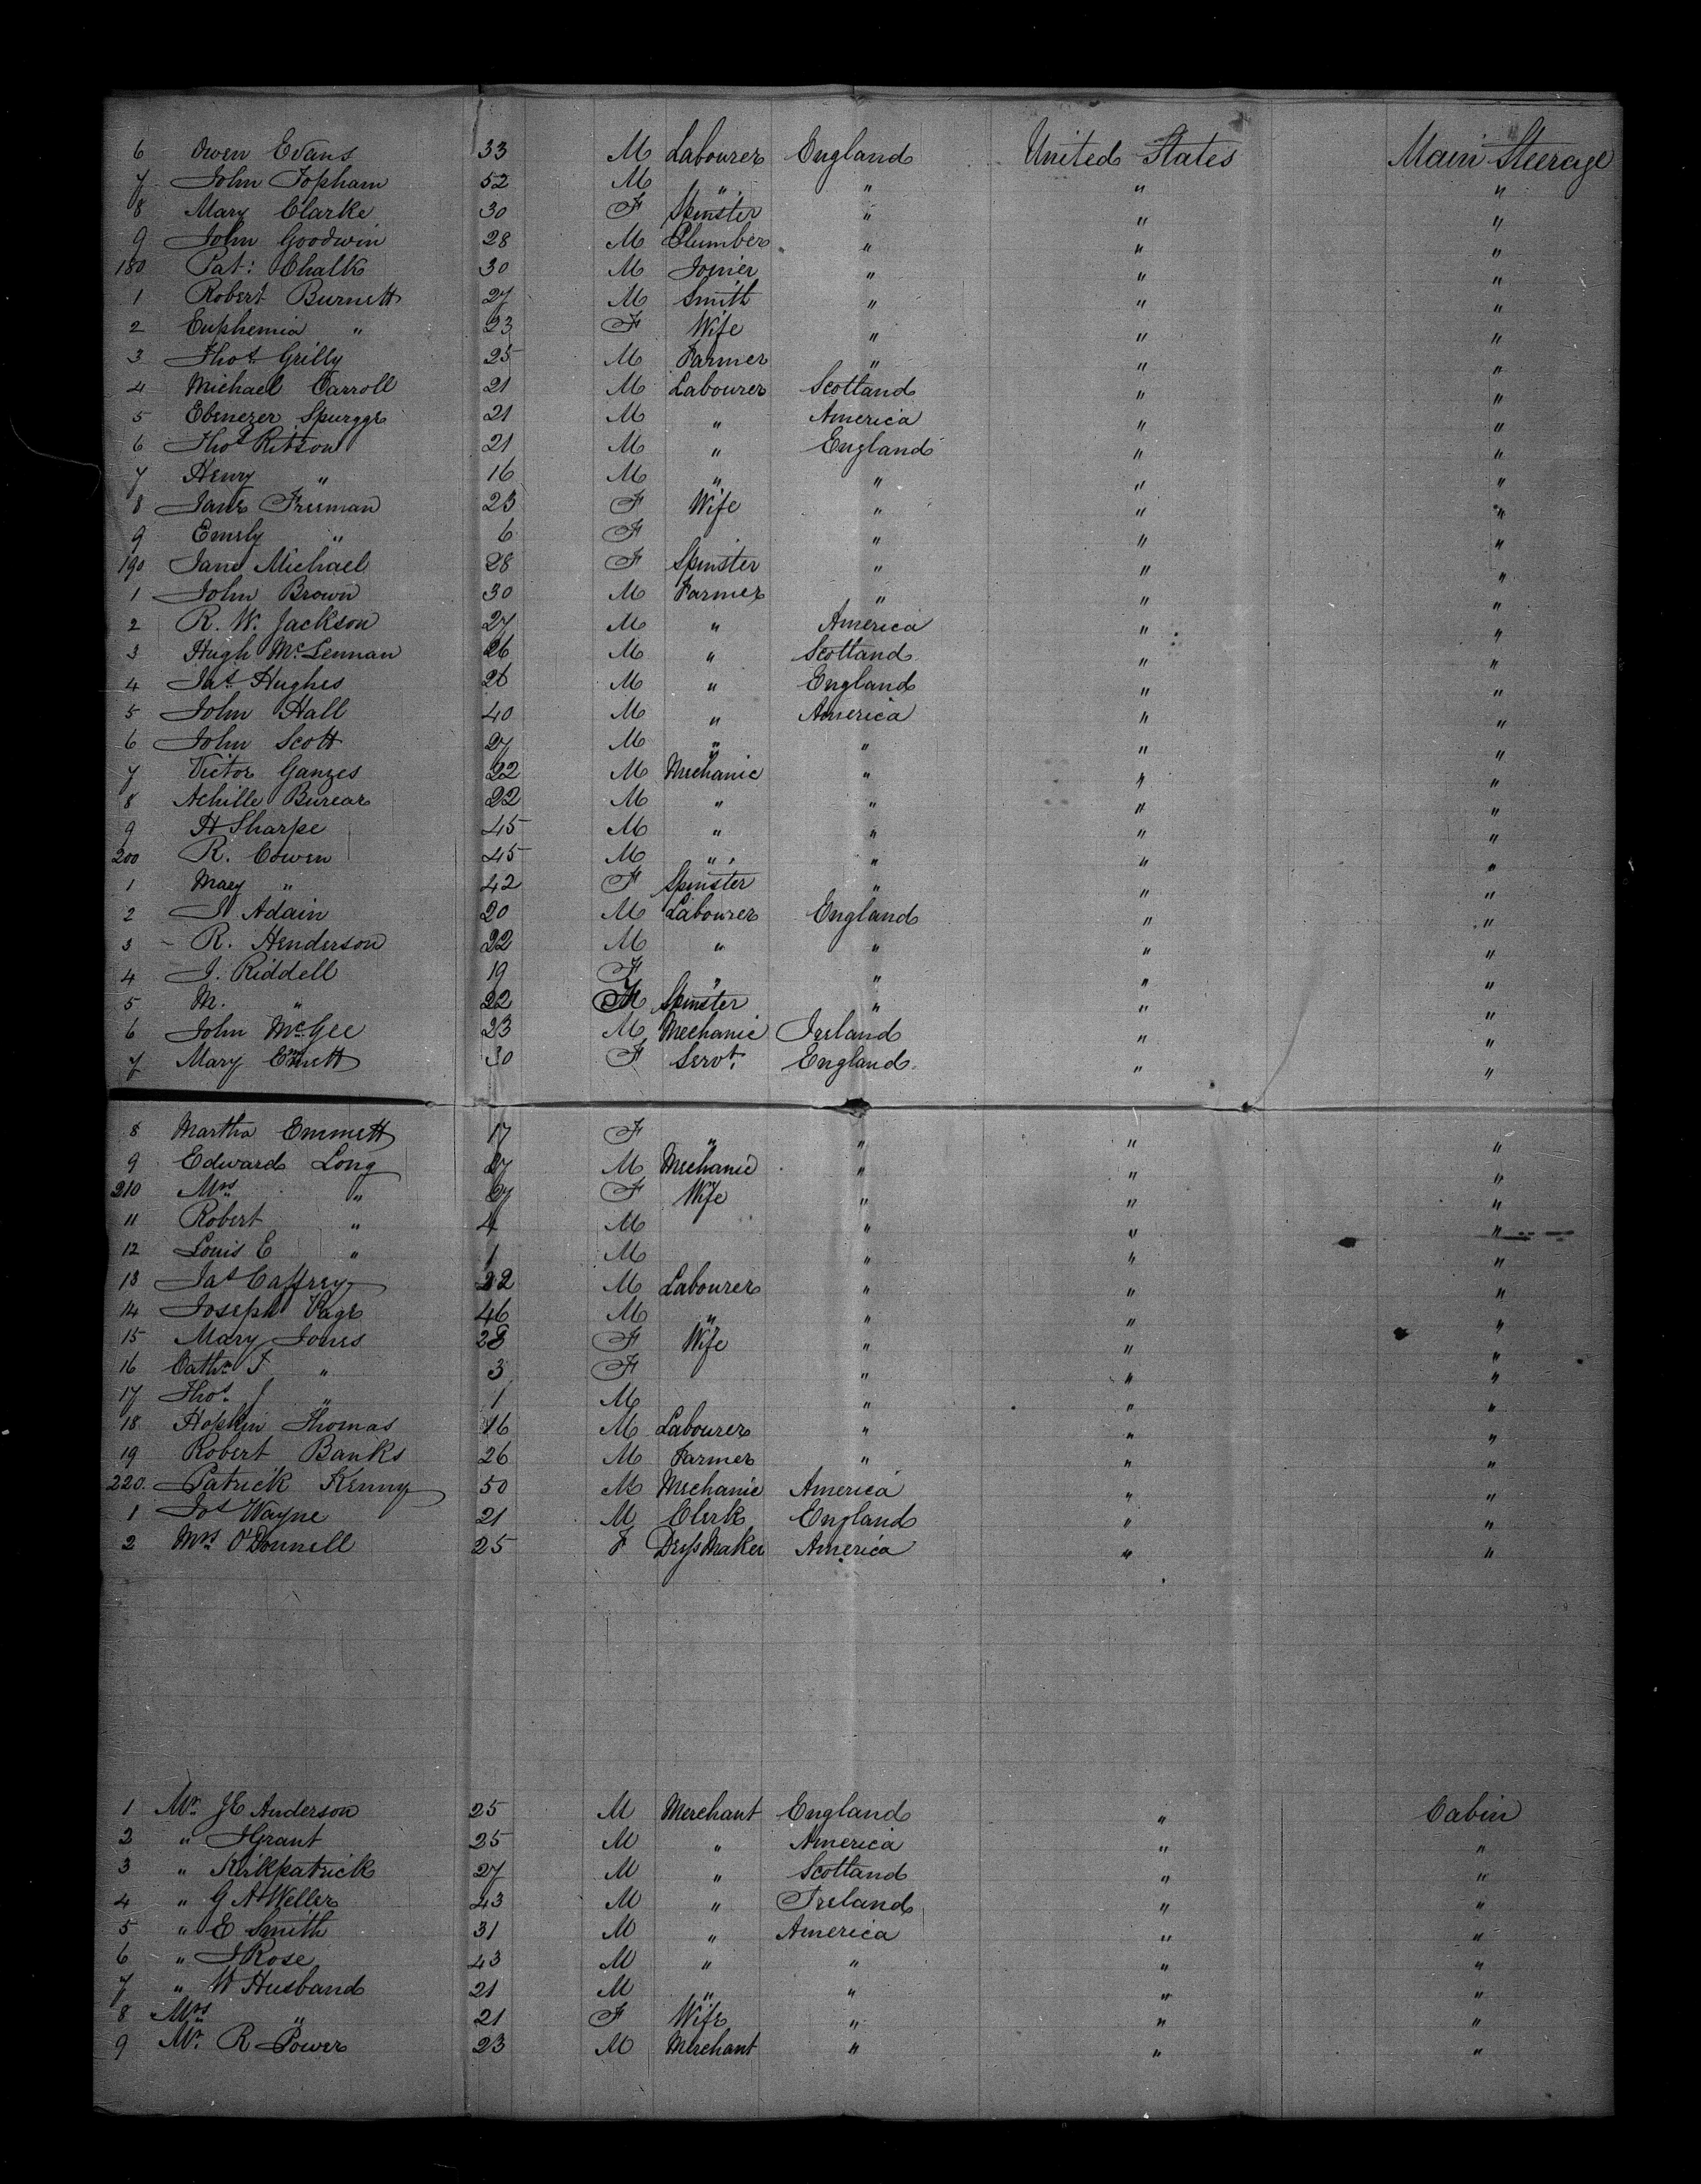 6 Owen Evans 33 M Labourer England United States Main Steerage
7 John Topham 52 M " " " "
8 Mary Clarke 30 F Spinster " " "
9 John Goodwin 28 M Plumber " " "
180 Pat: Chalk 30 M Joiner " " "
1 Robert Burnett 27 M Smith " " "
2 Euphemia " 23 F Wife " " "
3 Thos. Grilly 25 M Farmer " " "
4 Michael Carroll 21 M Labourer Scotland " "
5 Ebenezer 21 M " America " "
6 Thos Ritson 21 M " England " "
7 Henry " 16 M " " " "
8 Jane Freeman 23 F Wife " " "
9 Emily " 6 F " " "
190 Jane Michael 28 F Spinster " " "
1 John Brown 30 M Farmer " " "
2 R. W. Jackson 27 M " America " "
3 Hugh McLennan 26 M " Scotland " "
4 Jas. Hughes 26 M " England " "
5 John Hall 40 M " America " "
6 John Scott 27 M " " " "
7 Victor Ganzes 22 M Mechanic " " "
8 Achille Burear 22 M " " " "
9 H Sharpe 45 M " " " "
200 R. Cowen 45 M " " " "
1 Mary " 42 F Spinster " " "
2 J Adain 20 M Labourer England " "
3 R. Henderson 22 M " " " "
4 J. Riddell 19 F " " " "
5 M. " 22 Spinster " " "
6 John McGee 23 M Mechanic Ireland " "
7 Mary Emmett 30 F Servt. England " "
8 Martha Emmett 17 F " " " "
9 Edward Long 27 M Mechanic " " "
210 Mrs " 27 F Wife " " "
11 Robert " 4 M " " "
12 Louis E " 1 M " " "
13 Jas Caffrey 22 M Labourer " " "
14 Joseph Page 46 M " " " "
15 Mary Jones 28 F Wife " " "
16 Cathn. J " 3 F " " "
17 Thos. J " 1 M " " "
18 Hopkin Thomas 16 M Labourer " " "
19 Robert Banks 26 M Farmer " " "
220. Patrick Kenny 50 M Mechanic America " "
1 Jos Wayne 21 M Clerk England " "
2 Mrs. O'Donnell 25 F Dress Maker America " "
1 Mr. J E Anderson 25 M Merchant England " Cabin
2 " J Grant 25 M " America " "
3 " Kirkpatrick 27 M " Scotland " "
4 " G A Weller 43 M " Ireland " "
5 " E Smith 31 M " America " "
6 " J Rose 43 M " " " "
7 " W Husband 21 M " " " "
8 Mrs " 21 F Wife " " "
9 Mr. R Power 23 M Merchant " " "